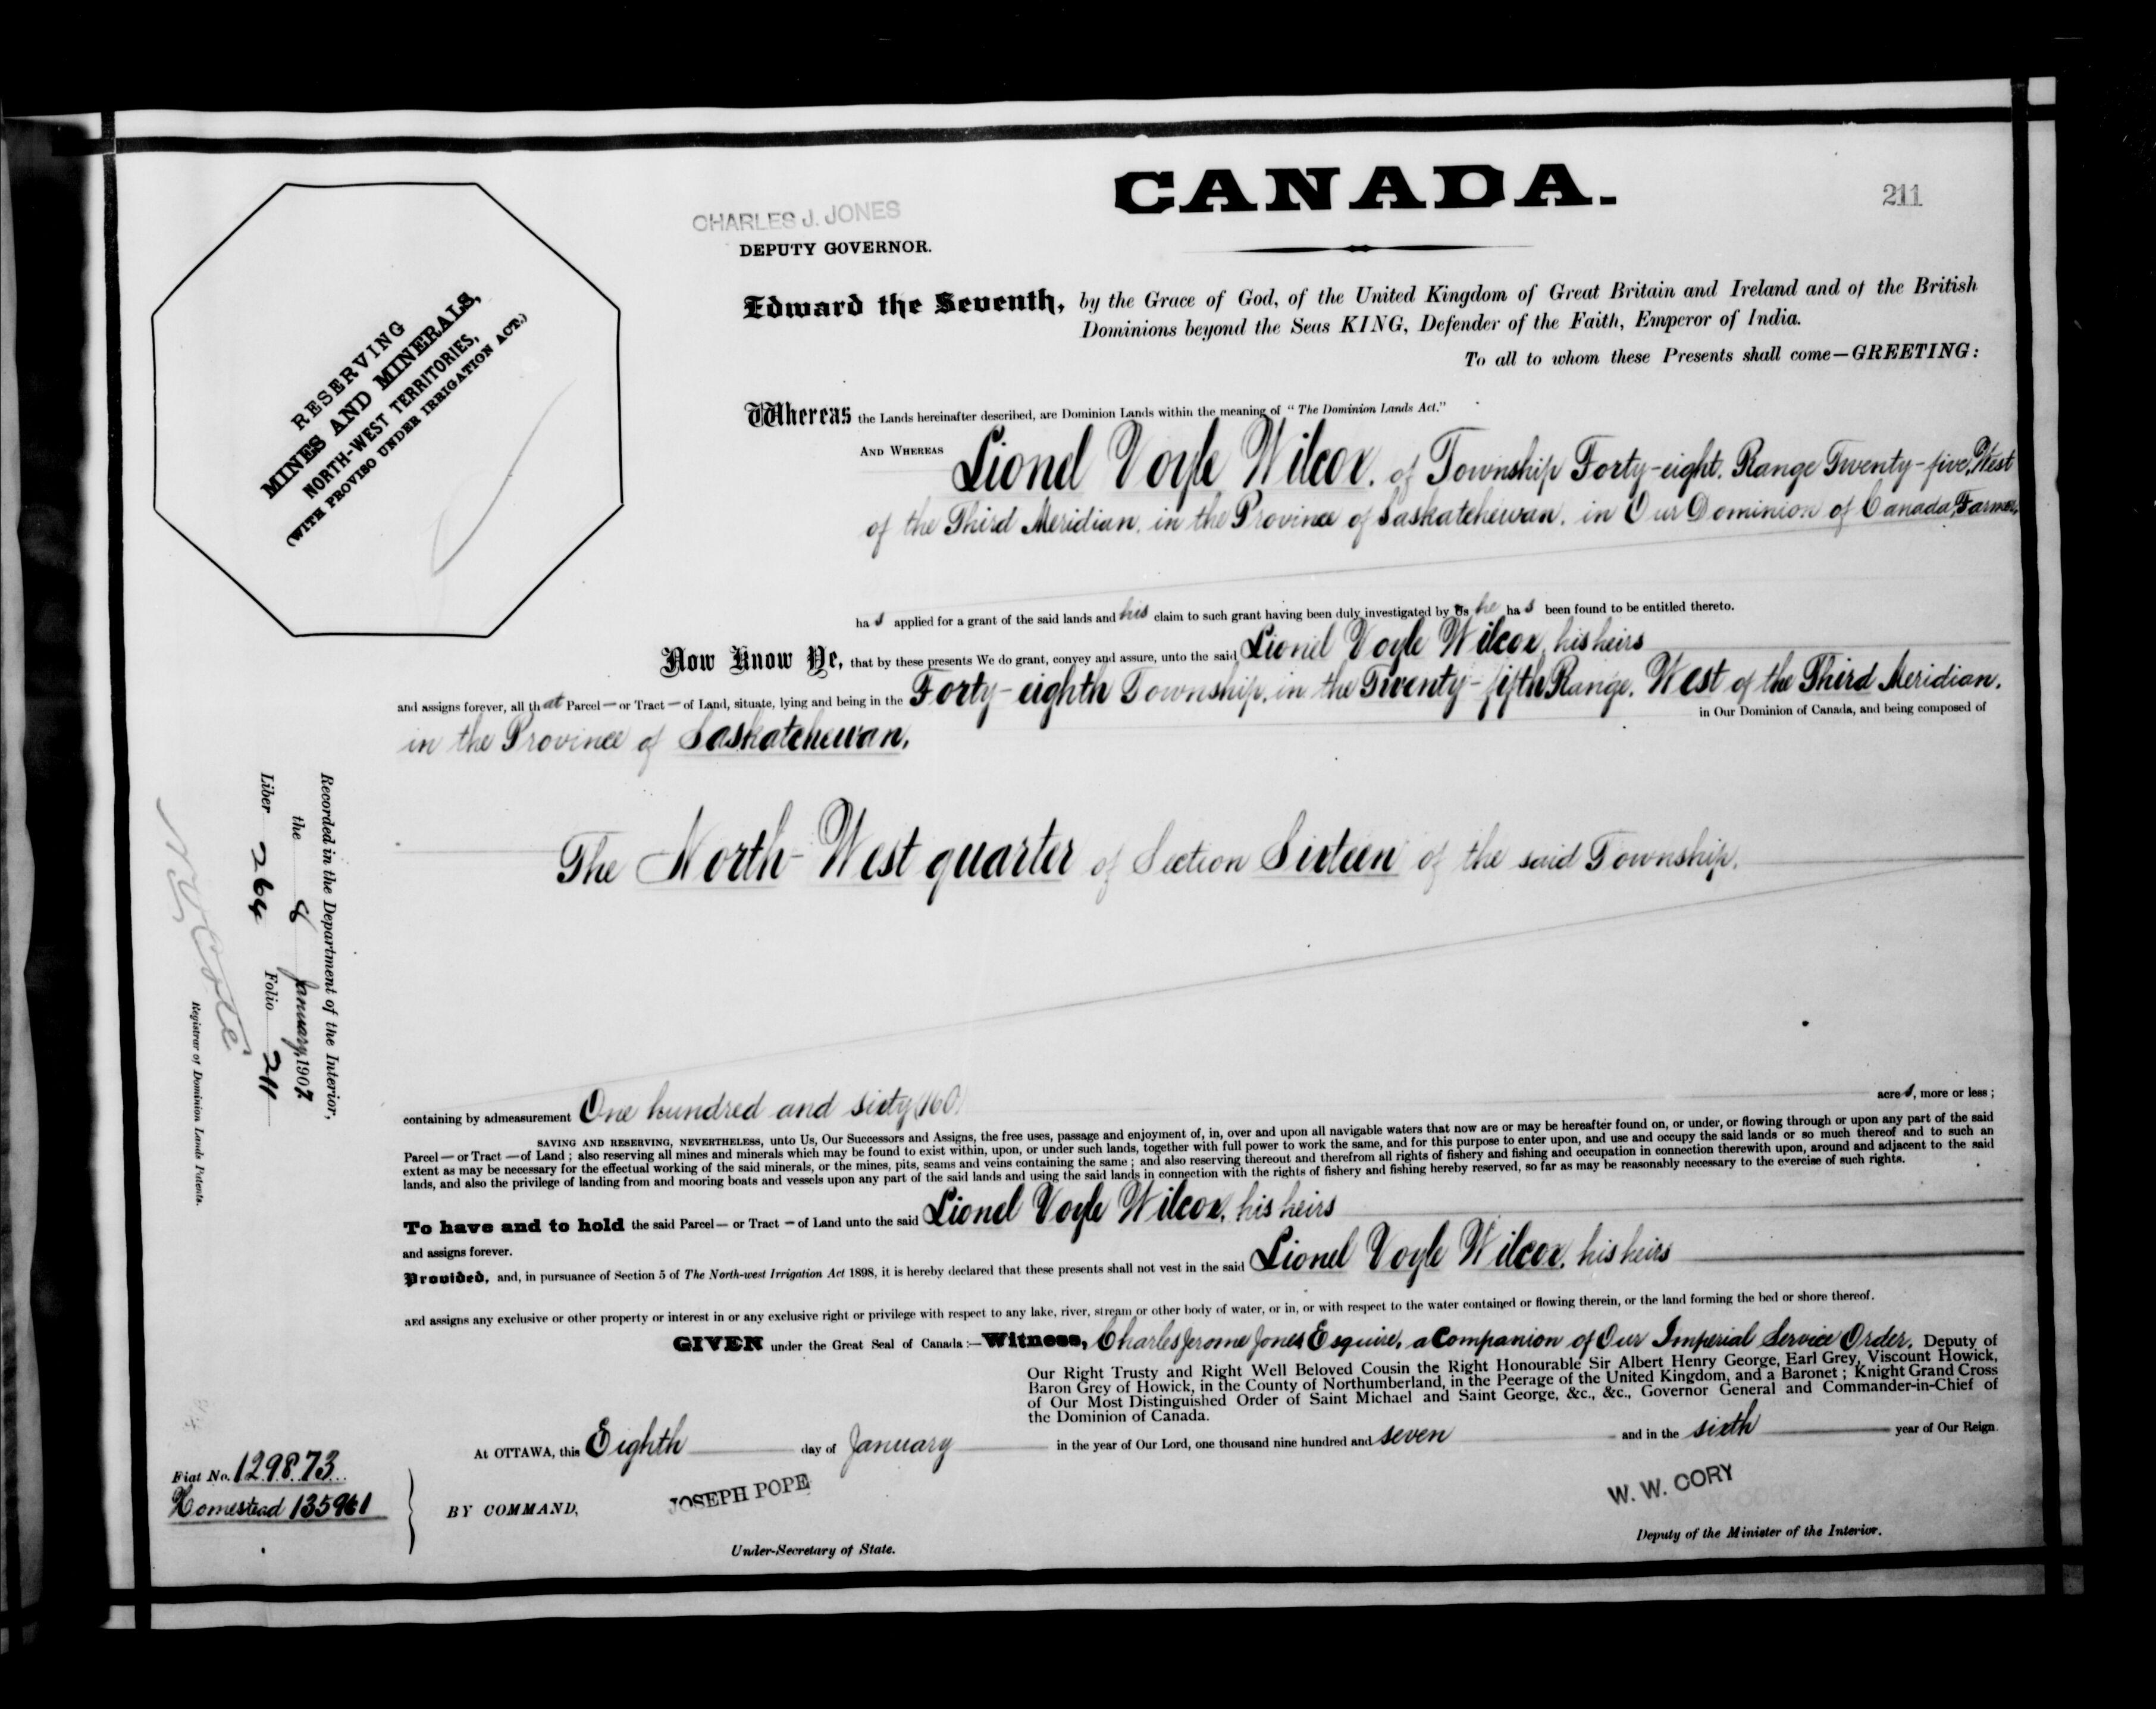 CANADA.
211
CHARLES J. JONES
DEPUTY GOVERNOR.
RESERVING
MINES AND MINERALS,
NORTH-WEST TERRITORIES,
(WITH PROVISO UNDER IRRIGATION ACT.)
Edward the Seventh, by the Grace of God, of the United Kingdom of Great Britain and Ireland and of the British
Dominions beyond the Seas KING, Defender of the Faith, Emperor of India.
To all to whom these Presents shall come—GREETING:
Whereas the Lands hereinafter described, are Dominion Lands within the meaning of "The Dominion Lands Act."
AND WHEREAS Lionel Voyle Wilcox, of Township Forty-eight, Range Twenty-five, West
of the Third Meridian, in the Province of Saskatchewan, in Our Dominion of Canada, Farmer,
has applied for a grant of the said lands and his claim to such grant having been duly investigated by Us he has been found to be entitled thereto.
Now Know Ye, that by these presents We do grant, convey and assure, unto the said Lionel Voyle Wilcox, his heirs
and assigns forever, all that Parcel — or Tract — of Land, situate, lying and being in the Forty-eighth Township, in the Twenty-fifth Range, West of the Third Meridian,
in the Province of Saskatchewan, in Our Dominion of Canada, and being composed of
The North-West quarter of Section Sixteen of the said Township,
containing by admeasurement One hundred and sixty (160) acres, more or less;
SAVING AND RESERVING, NEVERTHELESS, unto Us, Our Successors and Assigns, the free uses, passage and enjoyment of, in, over and upon all navigable waters that now are or may be hereafter found on, or under, or flowing through or upon any part of the said
Parcel — or Tract — of Land; also reserving all mines and minerals which may be found to exist within, upon, or under such lands, together with full power to work the same, and for this purpose to enter upon, and use and occupy the said lands or so much thereof and to such an
extent as may be necessary for the effectual working of the said minerals, or the mines, pits, seams and veins containing the same; and also reserving thereout and therefrom all rights of fishery and fishing and occupation in connection therewith upon, around and adjacent to the said
lands, and also the privilege of landing from and mooring boats and vessels upon any part of the said lands and using the said lands in connection with the rights of fishery and fishing hereby reserved, so far as may be reasonably necessary to the exercise of such rights.
To have and to hold the said Parcel — or Tract — of Land unto the said Lionel Voyle Wilcox, his heirs
and assigns forever.
Provided, and, in pursuance of Section 5 of The North-west Irrigation Act 1898, it is hereby declared that these presents shall not vest in the said Lionel Voyle Wilcox, his heirs
and assigns any exclusive or other property or interest in or any exclusive right or privilege with respect to any lake, river, stream or other body of water, or in, or with respect to the water contained or flowing therein, or the land forming the bed or shore thereof.
GIVEN under the Great Seal of Canada:—Witness, Charles Jerome Jones Esquire, a Companion of Our Imperial Service Order, Deputy of
Our Right Trusty and Right Well Beloved Cousin the Right Honourable Sir Albert Henry George, Earl Grey, Viscount Howick,
Baron Grey of Howick, in the County of Northumberland, in the Peerage of the United Kingdom, and a Baronet; Knight Grand Cross
of Our Most Distinguished Order of Saint Michael and Saint George, &c., &c., Governor General and Commander-in-Chief of
the Dominion of Canada.
At OTTAWA, this Eighth day of January in the year of Our Lord, one thousand nine hundred and seven and in the sixth year of Our Reign.
BY COMMAND,
JOSEPH POPE
Under-Secretary of State.
W. W. CORY
Deputy of the Minister of the Interior.
Recorded in the Department of the Interior,
the 8 January, 1907
Liber 264 Folio 211
N. O. Coté
Registrar of Dominion Lands Patents.
Fiat No. 129873
Homestead 135961